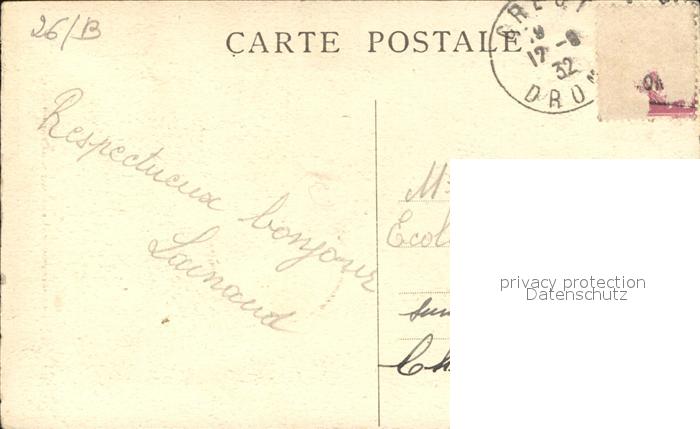 26/B
CARTE POSTALE
CREST
19
17 -8
32
DRO
Respectueux bonjour
Lainaud
M
Ecol
privacy protection
Datenschutz
sur
Ch